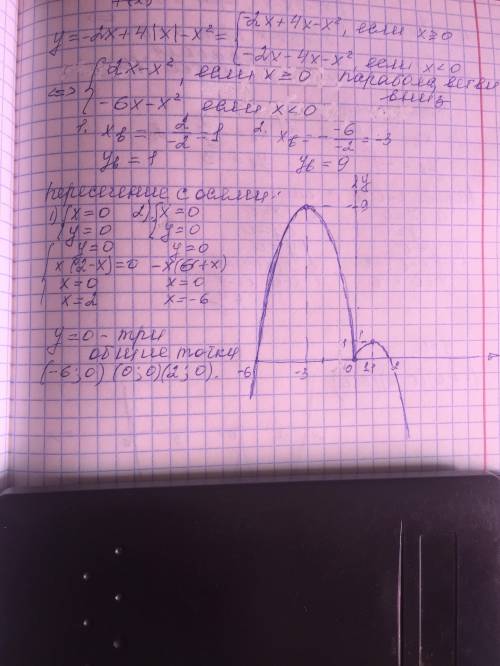 y=-2x+4|x|-x²= { 2x+4x-x², если x≥0
-2x-4x-x², если x<0
<=> { 2x-x², если x≥0 парабола, ветви
-6x-x² если x<0 вниз
1. xв = -2/-2 = 1 2. xв = - -6/-2 = -3
yв = 1 yв = 9
пересечение с осями:
1) { x=0 2) { x=0
y=0 y=0
{ y=0 y=0
x(2-x)=0 -x(6+x)
x=0 x=0
x=2 x=-6
y=0 - три
общие точки
(-6;0) (0;0)(2;0).
y
9
1 1
-6 -3 0 1 2